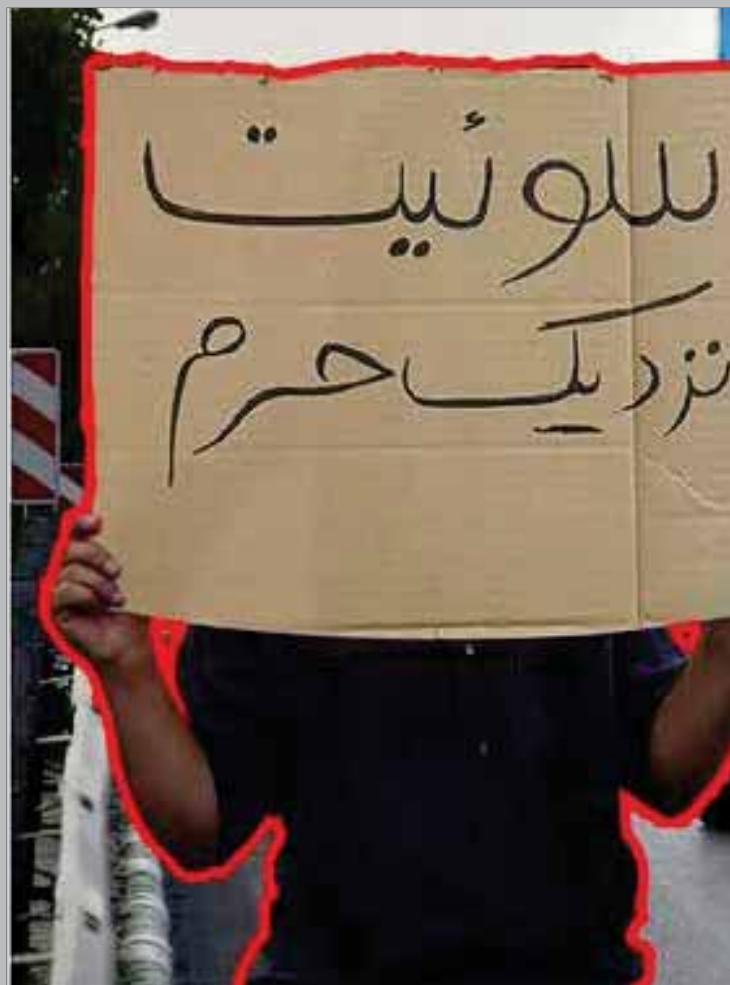 سوئیت
نزدیک حرم